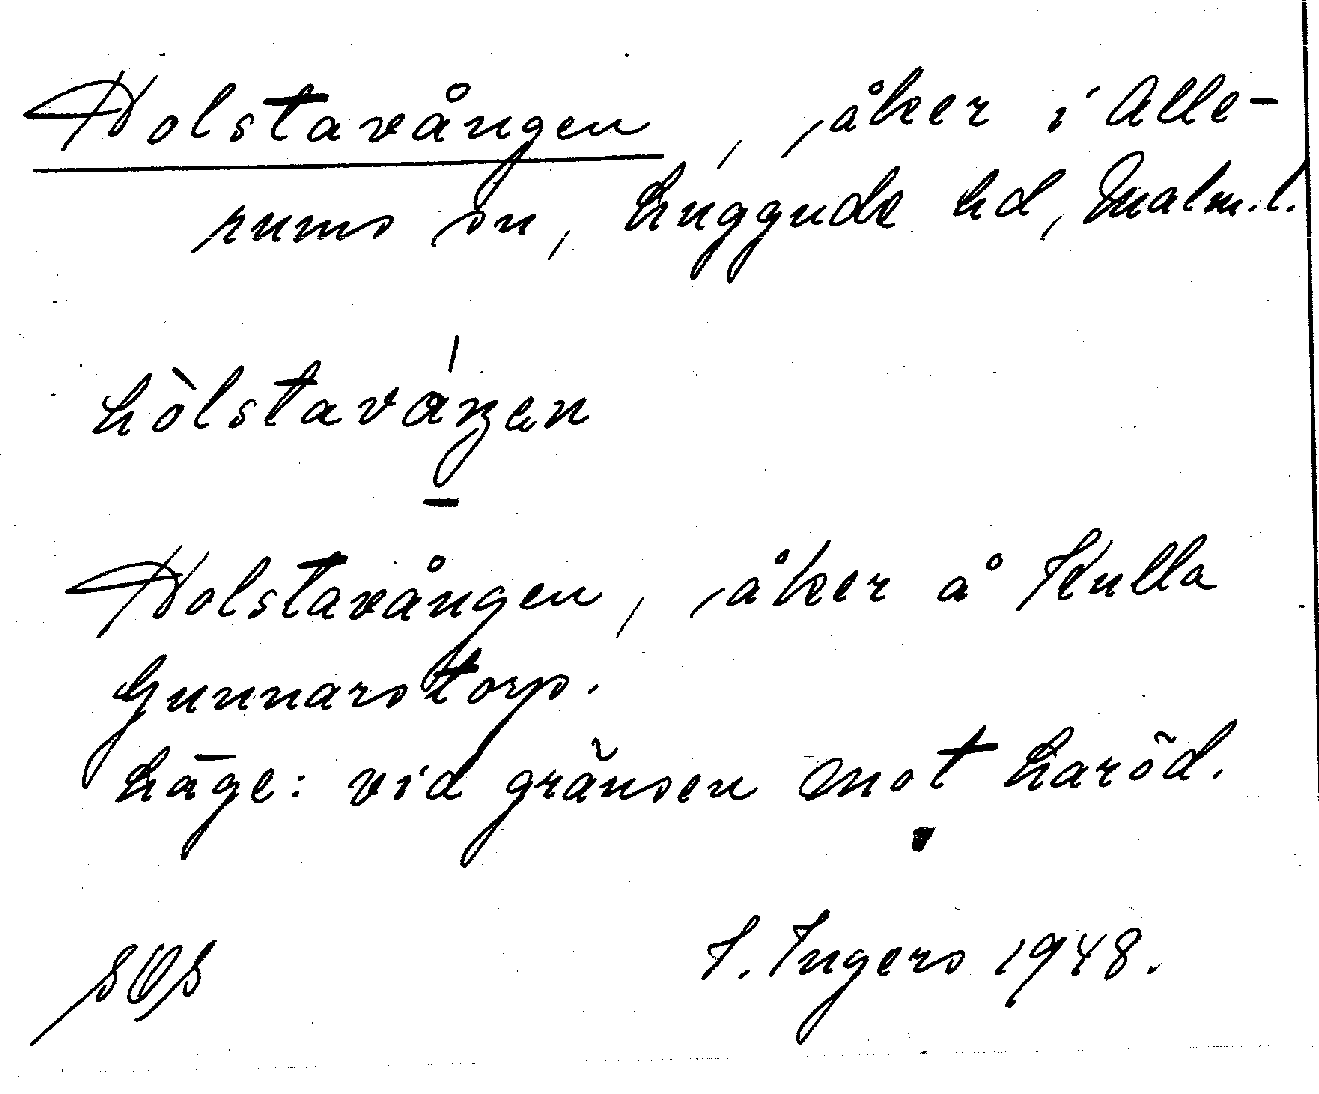 Holstavången, åker i Alle-
rums sn, Luggude hd, Malm.l.
hòlstaváŋen
Holstavången, åker å Kulla
Gunnarstorp.
Läge: vid gränsen mot Laröd.
I. Ingers 1948.